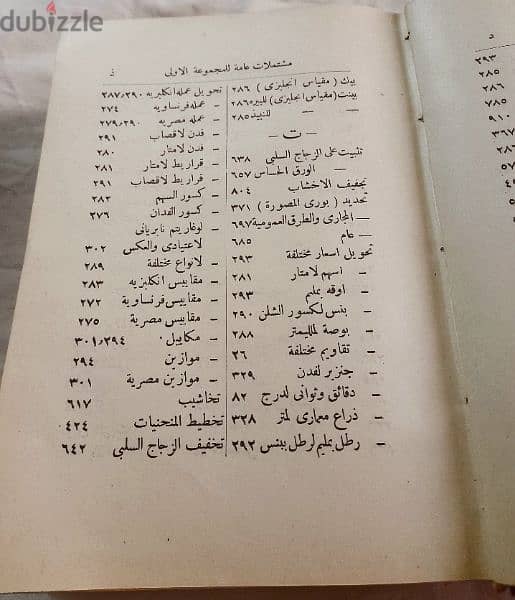 dubizzle
مشتملات عامة للمجموعة الاولى
ذ
يك ( مقياس انجليزى ) ٢٨٦
بينت (مقياس انجليزى) للبيره ٢٨٦
— — للنبيذ ٢٨٥
— ت —
تثبيت على الزجاج السلبى ٦٣٨
— الورق الحساس ٦٥٧
تجفيف الاخشاب ٨٠٤
تحديد ( بورى المصورة ) ٣٧١
— المجارى والطرق العمومية ٦٩٧
— عام ٦٨٥
تحويل اسعار مختلفة ٢٩٣
— اسهم لامتار ٢٨١
— اوقه بمليم ٢٩٣
— بنس لكسور الشلن ٢٩٠
— بوصة لملليمتر ٢٨٨
— تقاويم مختلفة ٢٦
— جنزير لفدن ٣٢٩
— دقائق وثوانى لدرج ٨٢
— ذراع معمارى لمتر ٣٢٨
— رطل بمليم لرطل ببنس ٢٩٢
تحويل عمله انكليزيه ٢٨٧،٢٩٠
— عمله فرنساويه ٢٧٤
— عمله مصريه ٢٧٩،٢٩٠
— فدن لاقصاب ٢٩١
— فدن لامتار ٢٨٠
— قراريط لامتار ٢٨١
— قراريط لاقصاب ٢٩١
— كسور السهم ٢٨٢
— كسور الفدان ٢٧٦
— لوغاريتم نابريانى
لاعتيادى والعكس ٣٠٢
— لانواع مختلفة ٢٨٩
— مقاييس انكليزيه ٢٨٣
— مقاييس فرنساوية ٢٧٢
— مقاييس مصرية ٢٧٥
— مكاييل ٣٠١،٢٩٤
— موازين ٢٩٤
— موازين مصرية ٣٠١
تخاشيب ٦١٧
تخطيط المنحنيات ٤٢٤
تخفيف الزجاج السلبى ٦٤٢
د
٢٩٣
٢٨٥
٢٨٦
٧٨٥
٩١٠